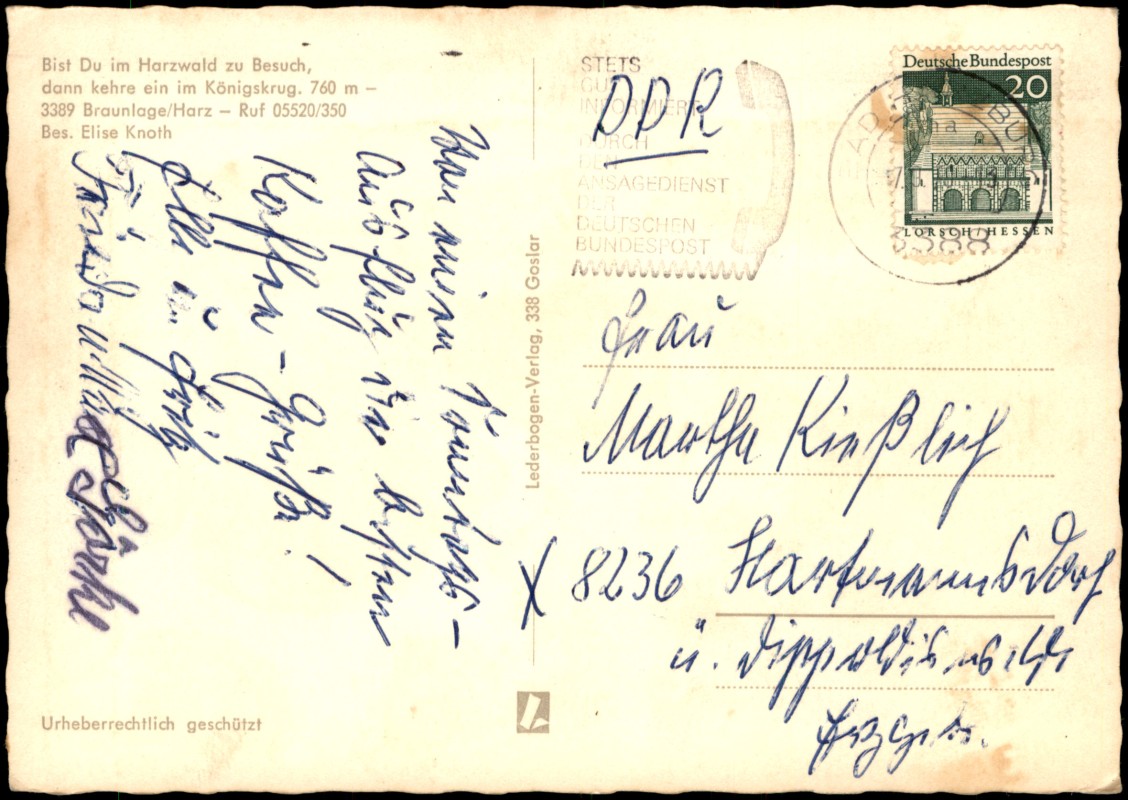 Bist Du im Harzwald zu Besuch,
dann kehre ein im Königskrug. 760 m –
3389 Braunlage/Harz – Ruf 05520/350
Bes. Elise Knoth
Von einem Sonntags-
Ausflug die besten
Kaffee-Grüße!
Elli u. Fritz
Frieda
Urheberrechtlich geschützt
Lederbogen-Verlag, 338 Goslar
STETS
GUT
INFORMIERT
DURCH
DEN
ANSAGEDIENST
DER
DEUTSCHEN
BUNDESPOST
DDR
Deutsche Bundespost
20
LORSCH/HESSEN
3388
Frau
Martha Kießlich
X 8236 Hartmannsdorf
ü. Dippoldiswalde
Erzgeb.